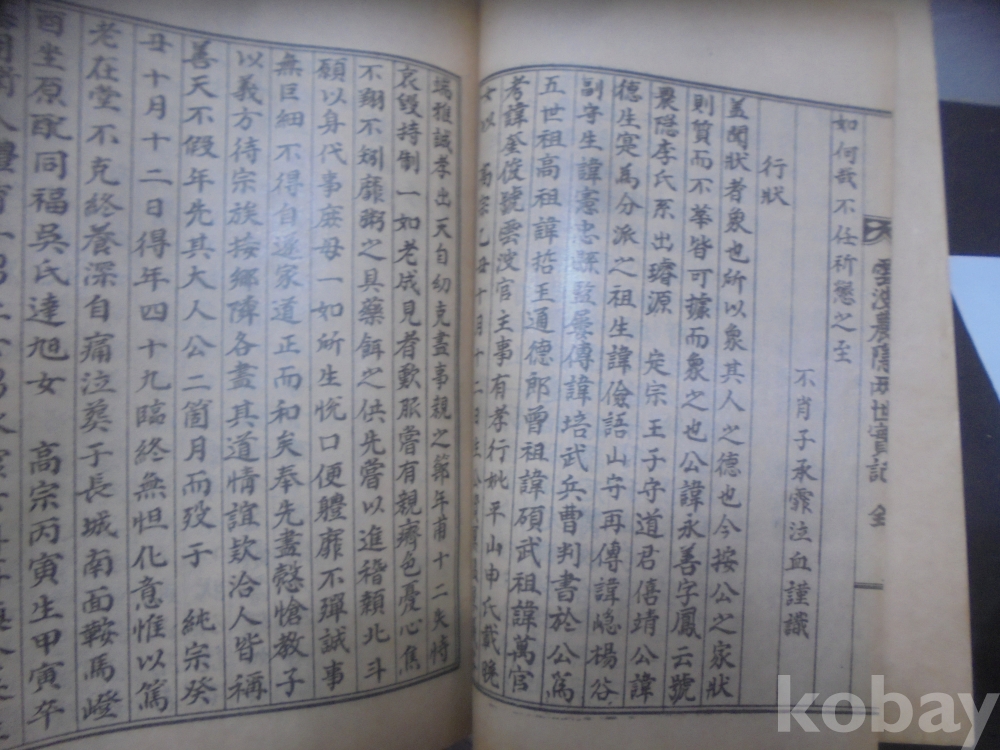 如何哉不任祈懇之至
不肖子承霏泣血謹識
行狀
蓋聞狀者象也所以象其人之德也今按公之家狀
則質而不華皆可據而象之也公諱永善字鳳云號
農隱李氏系出璿源 定宗王子守道君僖靖公諱
德生寔爲分派之祖生諱儉語山守再傳諱嶾楊谷
副守生諱憲忠縣監屢傳諱培武兵曹判書於公爲
五世祖高祖諱哲王通德郎曾祖諱碩武祖諱萬官
考諱奎俊號雲浚官主事有孝行妣平山申氏載晚
女以 高宗乙丑十月十二日生公
端雅誠孝出天自幼克盡事親之節年甫十二失恃
哀毀持制一如老成見者歎服嘗有親癠色憂心焦
不翔不矧靡粥之具藥餌之供先嘗以進稽顙北斗
願以身代事庶母一如所生悅口便軆靡不殫誠事
無巨細不得自遂家道正而和矣奉先盡慤愴教子
以義方待宗族接鄉隣各盡其道情誼款洽人皆稱
善天不假年先其大人公二箇月而歿于 純宗癸
丑十月十二日得年四十九臨終無怛化意惟以篤
老在堂不克終養深自痛泣葬于長城南面鞍馬嶝
酉坐原配同福吳氏達旭女 高宗丙寅生甲寅卒
雲浚農隱兩世實記 全
kobay